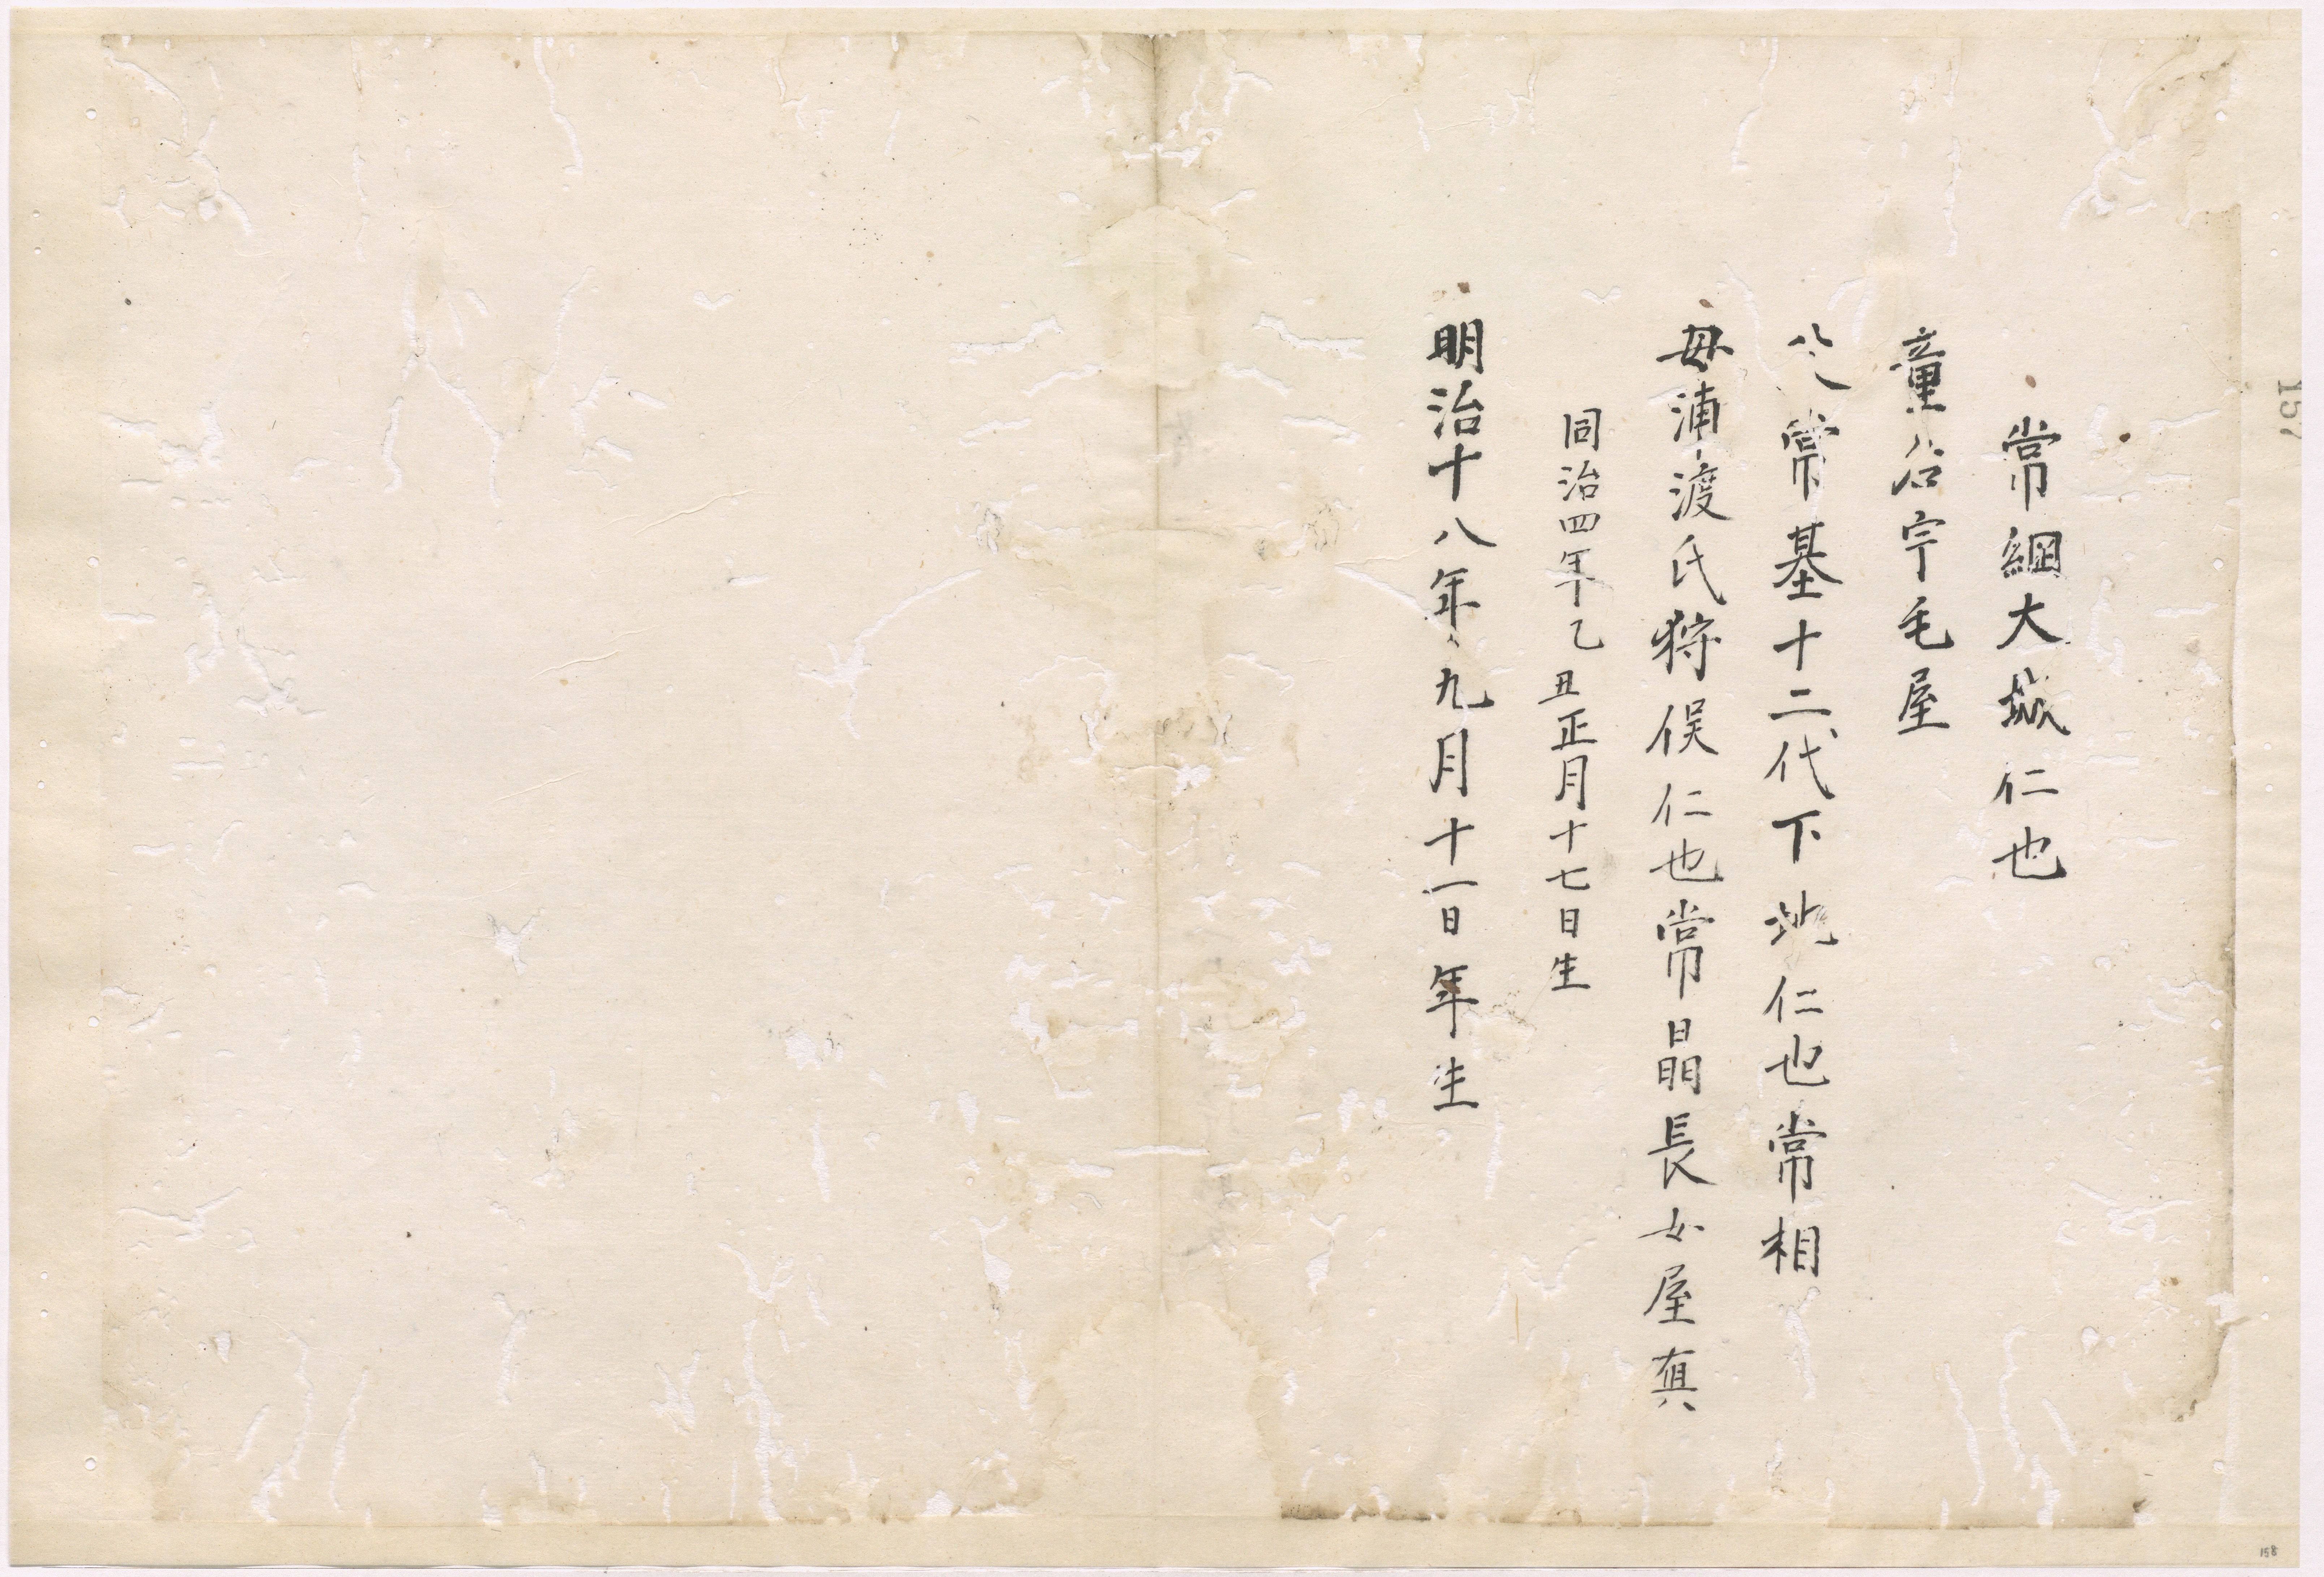 常綱大城仁也
童名宇毛屋
父常基十二代下地仁也常相
母浦渡氏狩俣仁也常晶長女屋真
同治四年乙丑正月十七日生
明治十八年九月十一日年生
157
158